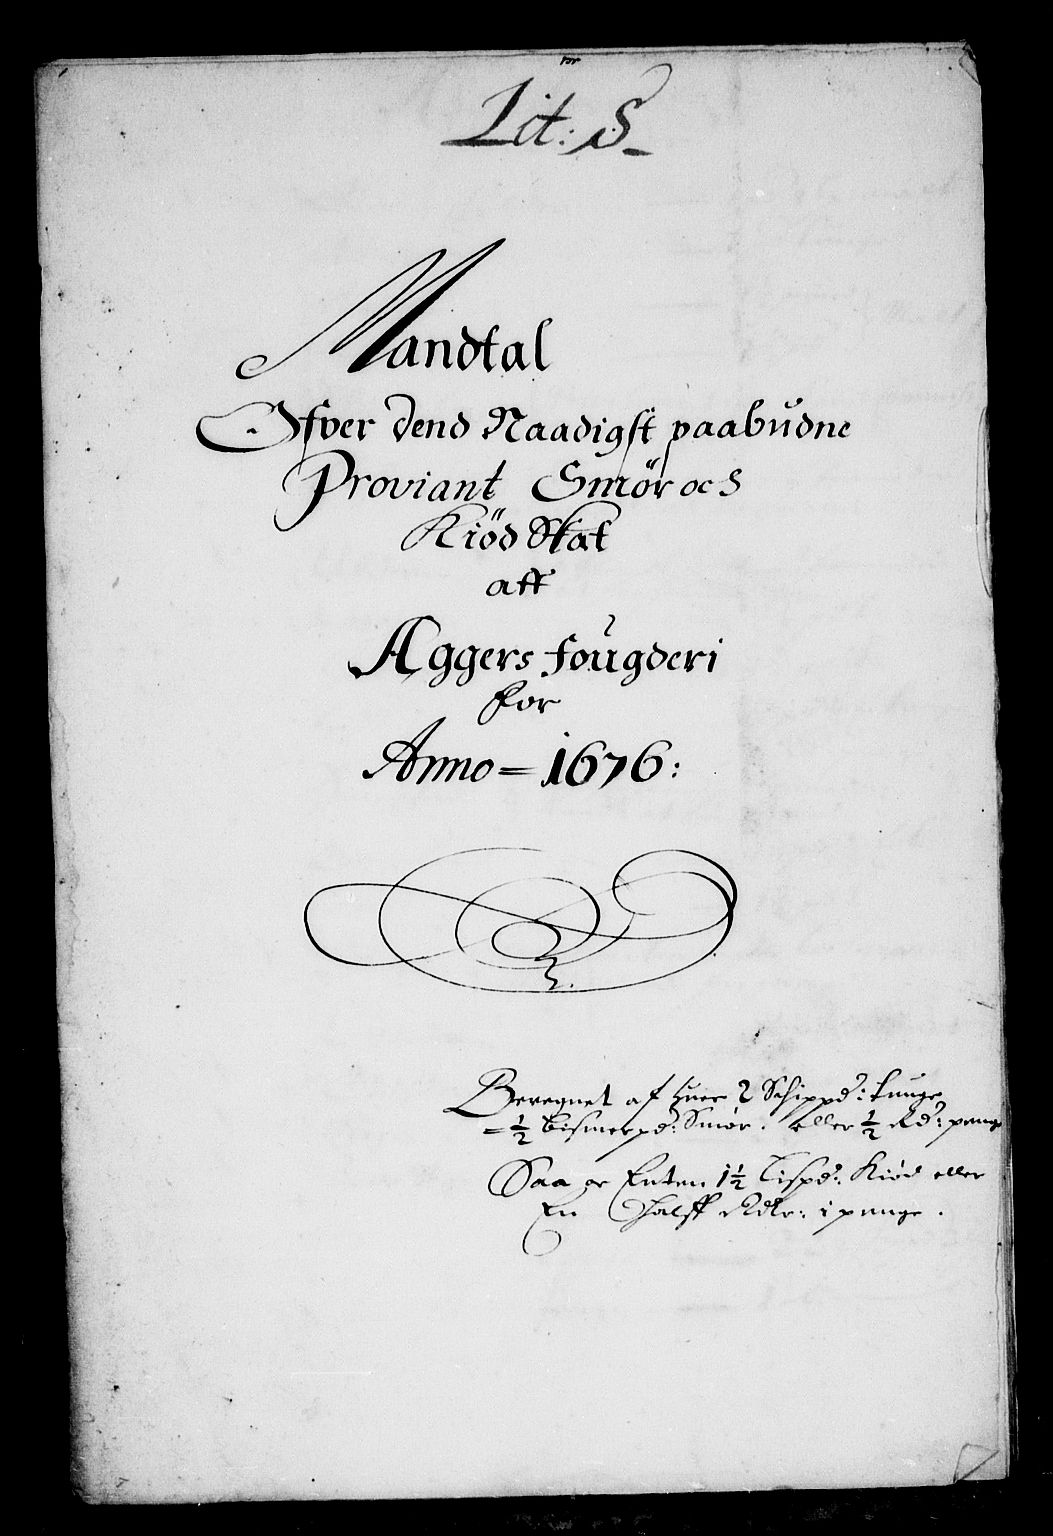 Lit: S
Mandtal
Ofver dend Naadigst paabudne
Proviant Smör och
Kiöd Skat
aff
Aggers fougderi
for
Anno = 1676:
Beregnet af huer 2 Schippd: tunge
= ½ bismerpd: Smör. eller ½ Rd: penge
Saa og Enten 1½ Lispd: Kiöd eller
En Halff Rdlr: i penge.